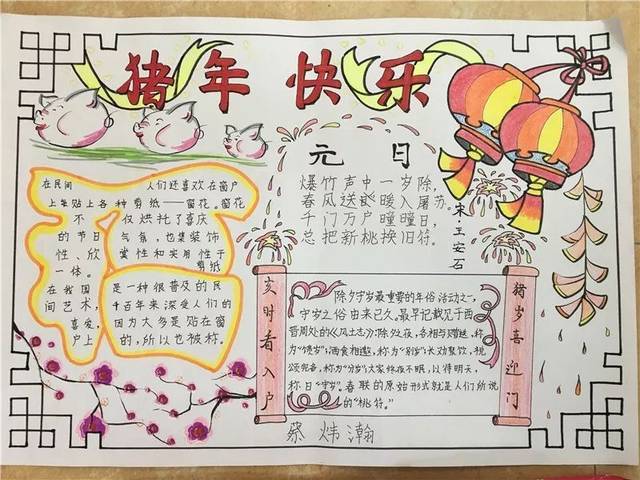 猪年快乐
元日
爆竹声中一岁除，
春风送暖入屠苏。
千门万户曈曈日，
总把新桃换旧符。
宋·王安石
在民间 人们还喜欢在窗户
上粘贴上各种剪纸——窗花。窗花
不仅烘托了喜庆
的节日气氛，也集装饰
性、欣赏性和实用性于
一体。剪纸
在我国是一种很普及的民
间艺术，千百年来深受人们的
喜爱，因为大多是贴在窗
户上的，所以也被称
亥时看入户
猪岁喜迎门
除夕守岁最重要的年俗活动之一，
守岁之俗由来已久。最早记载见于西
晋周处的《风土志》：除夕之夜，各相与赠送，称
为“馈岁”；酒食相邀，称为“别岁”；长幼聚饮，祝
颂完备，称为“分岁”；大家终夜不眠，以待明天，
称日“守岁”。春联的原始形式就是人们所说
的“桃符”。
蔡炜瀚